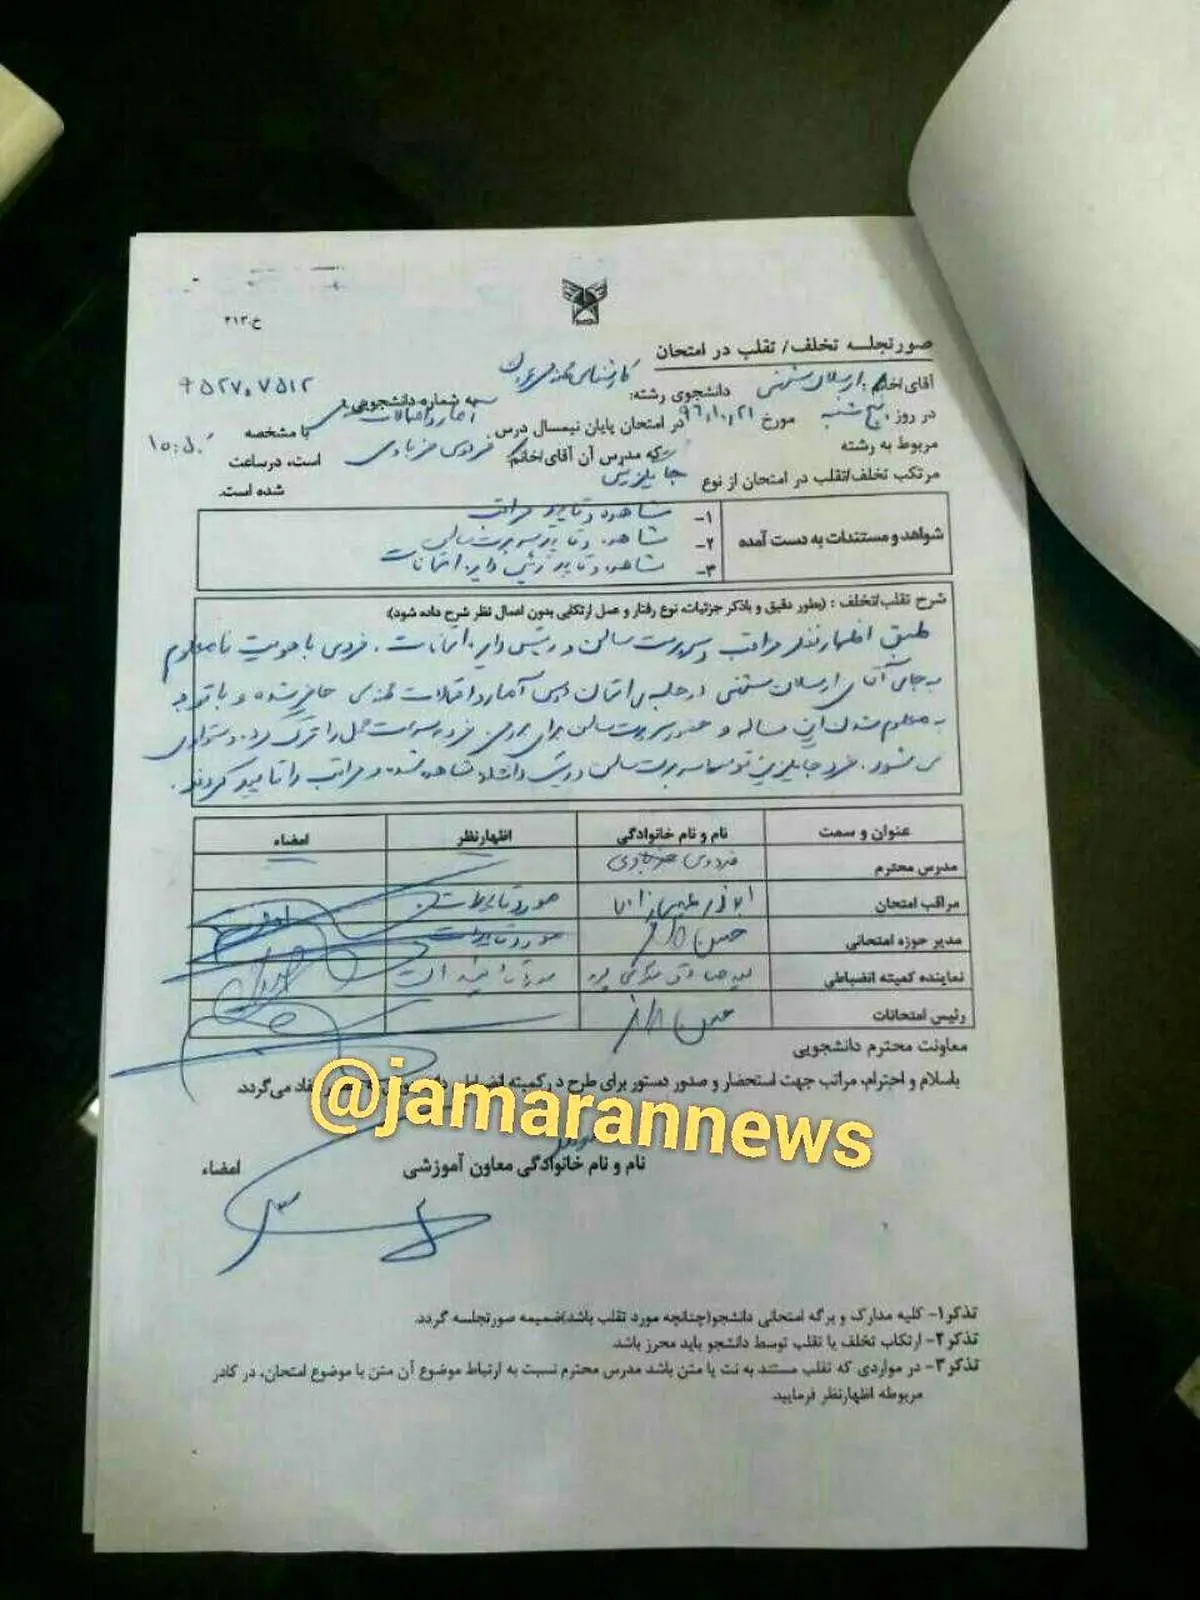 خ.۳۱۳
صورتجلسه تخلف/ تقلب در امتحان
آقای/خانم: ارسلان دانشجوی رشته: کارشناسی به شماره دانشجویی ۹۵۲۷۰۷۵۱۲
در روز پنج شنبه مورخ ۹۶,۱۰,۲۱ در امتحان پایان نیمسال درس آمار و احتمالات با مشخصه
مربوط به رشته که مدرس آن آقای/خانم فردوس است، درساعت ۱۰:۵۰
مرتکب تخلف/تقلب در امتحان از نوع جایگزینی شده است.
شواهد و مستندات به دست آمده
۱- مشاهده و تایید مراقب
۲- مشاهده و تایید سرپرست سالن
۳- مشاهده و تایید رئیس دایره امتحانات
شرح تقلب/تخلف : (بطور دقیق و باذکر جزئیات، نوع رفتار و عمل ارتکابی بدون اعمال نظر شرح داده شود)
طبق اظهار نظر مراقب و سرپرست سالن و رئیس دایره امتحانات، فردی با هویت نامعلوم
به جای آقای ارسلان در جلسه امتحان درس آمار و احتمالات مهندسی حاضر شده و با توجه
به معلوم شدن این مساله و حضور سرپرست سالن برای بررسی فرد به سرعت محل را ترک کرد.
می شود. فرد جایگزین توسط سرپرست سالن مشاهده شده و مراتب را تایید کردند.
عنوان و سمت نام و نام خانوادگی اظهارنظر امضاء
مدرس محترم فردوس
مراقب امتحان ابوذر مورد تایید است
مدیر حوزه امتحانی حسن مورد تایید است
نماینده کمیته انضباطی مورد تایید است
رئیس امتحانات حسن
معاونت محترم دانشجویی
باسلام و احترام، مراتب جهت استحضار و صدور دستور برای طرح در کمیته انضباطی فاد می‌گردد.
@jamarannews
نام و نام خانوادگی معاون آموزشی امضاء
تذکر۱- کلیه مدارک و برگه امتحانی دانشجو(چنانچه مورد تقلب باشد)ضمیمه صورتجلسه گردد.
تذکر۲- ارتکاب تخلف یا تقلب توسط دانشجو باید محرز باشد.
تذکر۳- در مواردی که تقلب مستند به نت یا متن باشد مدرس محترم نسبت به ارتباط موضوع آن متن با موضوع امتحان، در کادر
مربوطه اظهارنظر فرمایید.